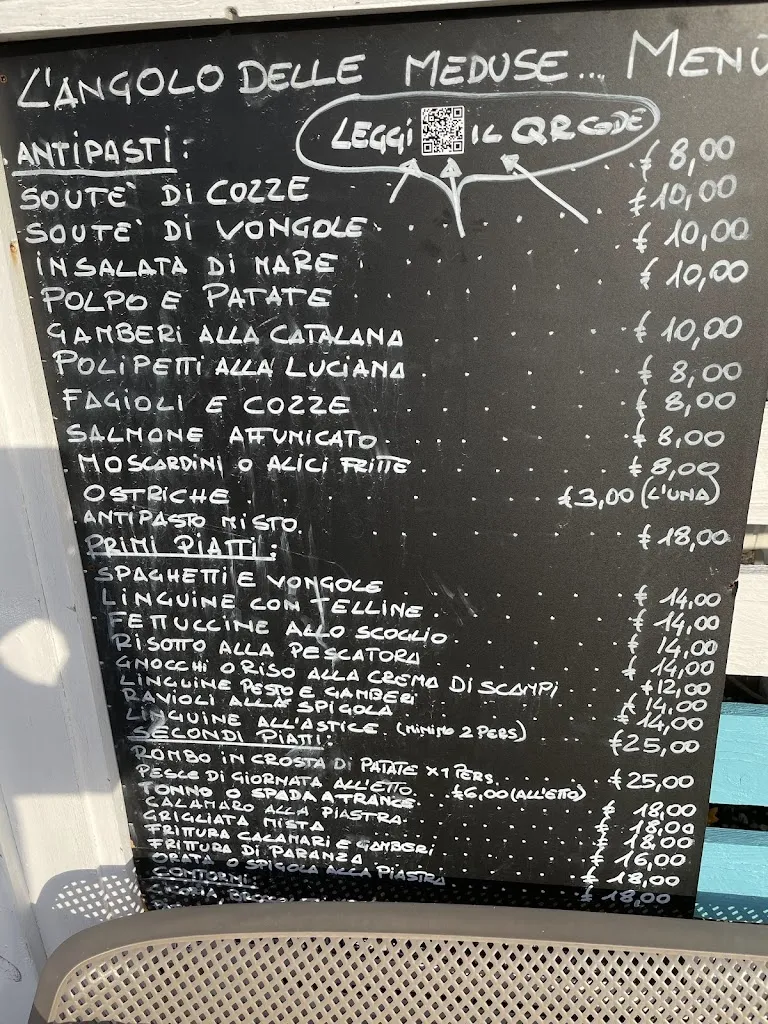 L'ANGOLO DELLE MEDUSE... MENÙ
LEGGI IL QR CODE
ANTIPASTI:
SOUTE' DI COZZE € 8,00
SOUTE' DI VONGOLE € 10,00
INSALATA DI MARE € 10,00
POLPO E PATATE € 10,00
GAMBERI ALLA CATALANA € 10,00
POLIPETTI ALLA LUCIANA € 8,00
FAGIOLI E COZZE € 8,00
SALMONE AFFUNICATO € 8,00
MOSCARDINI O ALICI FRITTE € 8,00
OSTRICHE €3,00 (L'UNA)
ANTIPASTO MISTO € 18,00
PRIMI PIATTI:
SPAGHETTI E VONGOLE € 14,00
LINGUINE CON TELLINE € 14,00
FETTUCCINE ALLO SCOGLIO € 14,00
RISOTTO ALLA PESCATORA € 14,00
GNOCCHI O RISO ALLA CREMA DI SCAMPI €12,00
LINGUINE PESTO E GAMBERI € 14,00
RAVIOLI ALLA SPIGOLA € 14,00
LINGUINE ALL'ASTICE (MINIMO 2 PERS) €25,00
SECONDI PIATTI:
ROMBO IN CROSTA DI PATATE X 1 PERS €25,00
PESCE DI GIORNATA ALL'ETTO €6,00 (ALL'ETTO)
TONNO O SPADA A TRANCE € 18,00
CALAMARO ALLA PIASTRA € 18,00
GRIGLIATA MISTA € 18,00
FRITTURA CALAMARI E GAMBERI € 16,00
FRITTURA DI PARANZA € 18,00
ORATA O SPIGOLA ALLA PIASTRA € 18,00
CONTORNI: